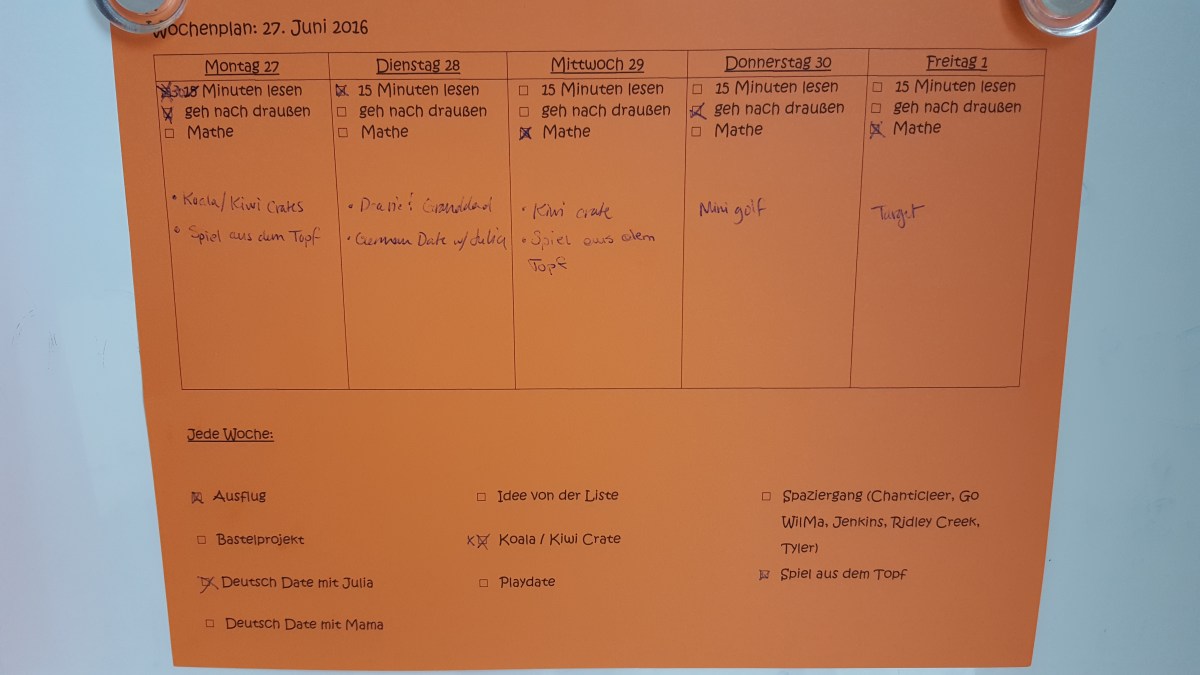 Wochenplan: 27. Juni 2016
Montag 27
15 Minuten lesen
geh nach draußen
Mathe
• Koala/Kiwi Crates
• Spiel aus dem Topf
Dienstag 28
15 Minuten lesen
geh nach draußen
Mathe
• Granddad
• German Date w/ Julia
Mittwoch 29
15 Minuten lesen
geh nach draußen
Mathe
• Kiwi crate
• Spiel aus dem
Topf
Donnerstag 30
15 Minuten lesen
geh nach draußen
Mathe
Mini golf
Freitag 1
15 Minuten lesen
geh nach draußen
Mathe
Target
Jede Woche:
Ausflug
Bastelprojekt
Deutsch Date mit Julia
Deutsch Date mit Mama
Idee von der Liste
Koala / Kiwi Crate
Playdate
Spaziergang (Chanticleer, Go
WilMa, Jenkins, Ridley Creek,
Tyler)
Spiel aus dem Topf